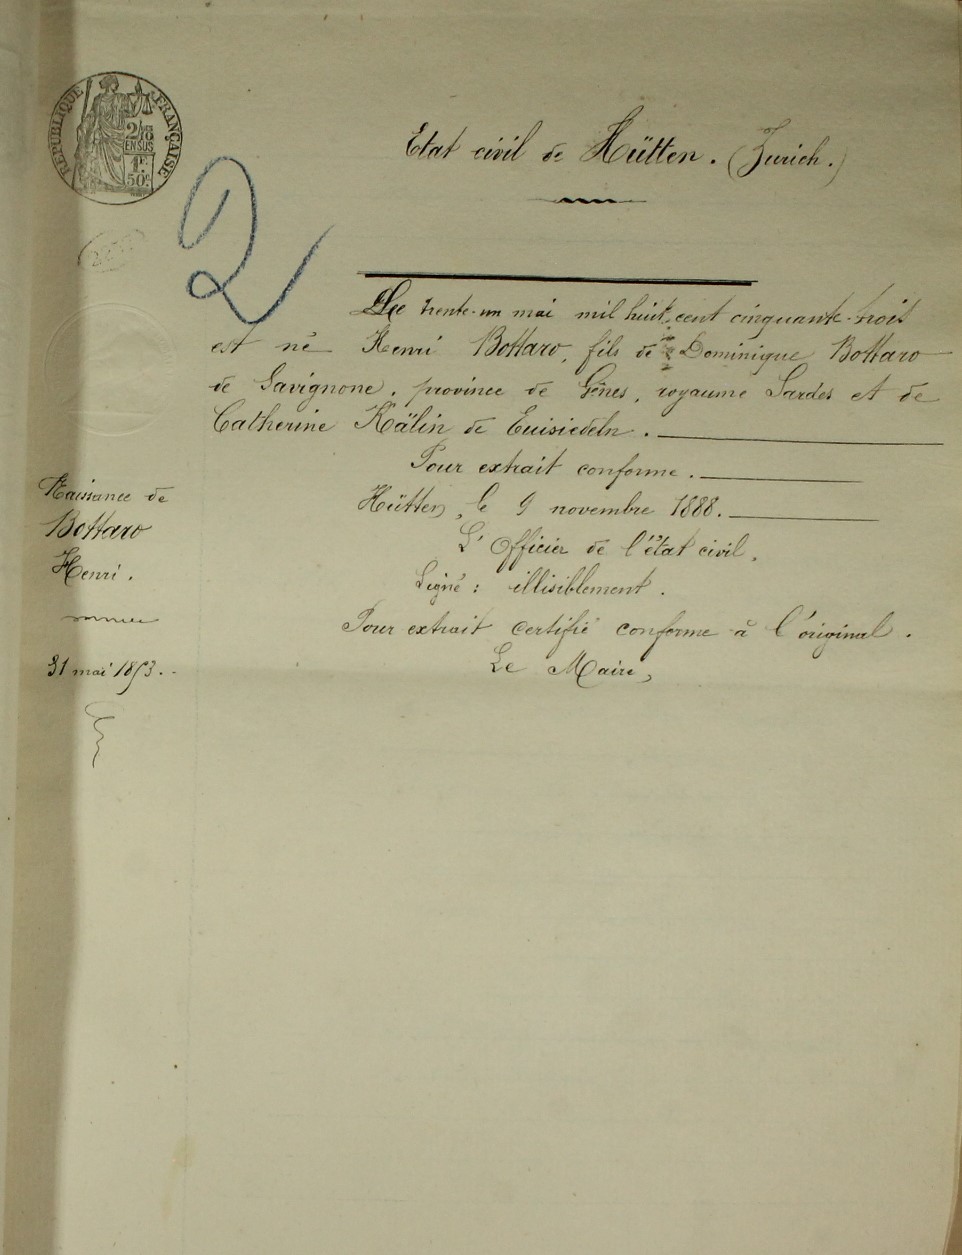 RÉPUBLIQUE FRANÇAISE
2/10
EN SUS
1F.
50c.
2
Etat civil de Hütten. (Zurich.)
Le trente-un mai mil huit cent cinquante-trois
est né Henri Bottaro, fils de Dominique Bottaro
de Savignone, province de Gênes, royaume Sardes et de
Catherine Kälin de Euisiedeln.
Pour extrait conforme.
Hütten, le 9 novembre 1888.
L'Officier de l'état civil,
Signé : illisiblement.
Pour extrait certifié conforme à l'original.
Le Maire,
Naissance de
Bottaro
Henri.
31 mai 1853.